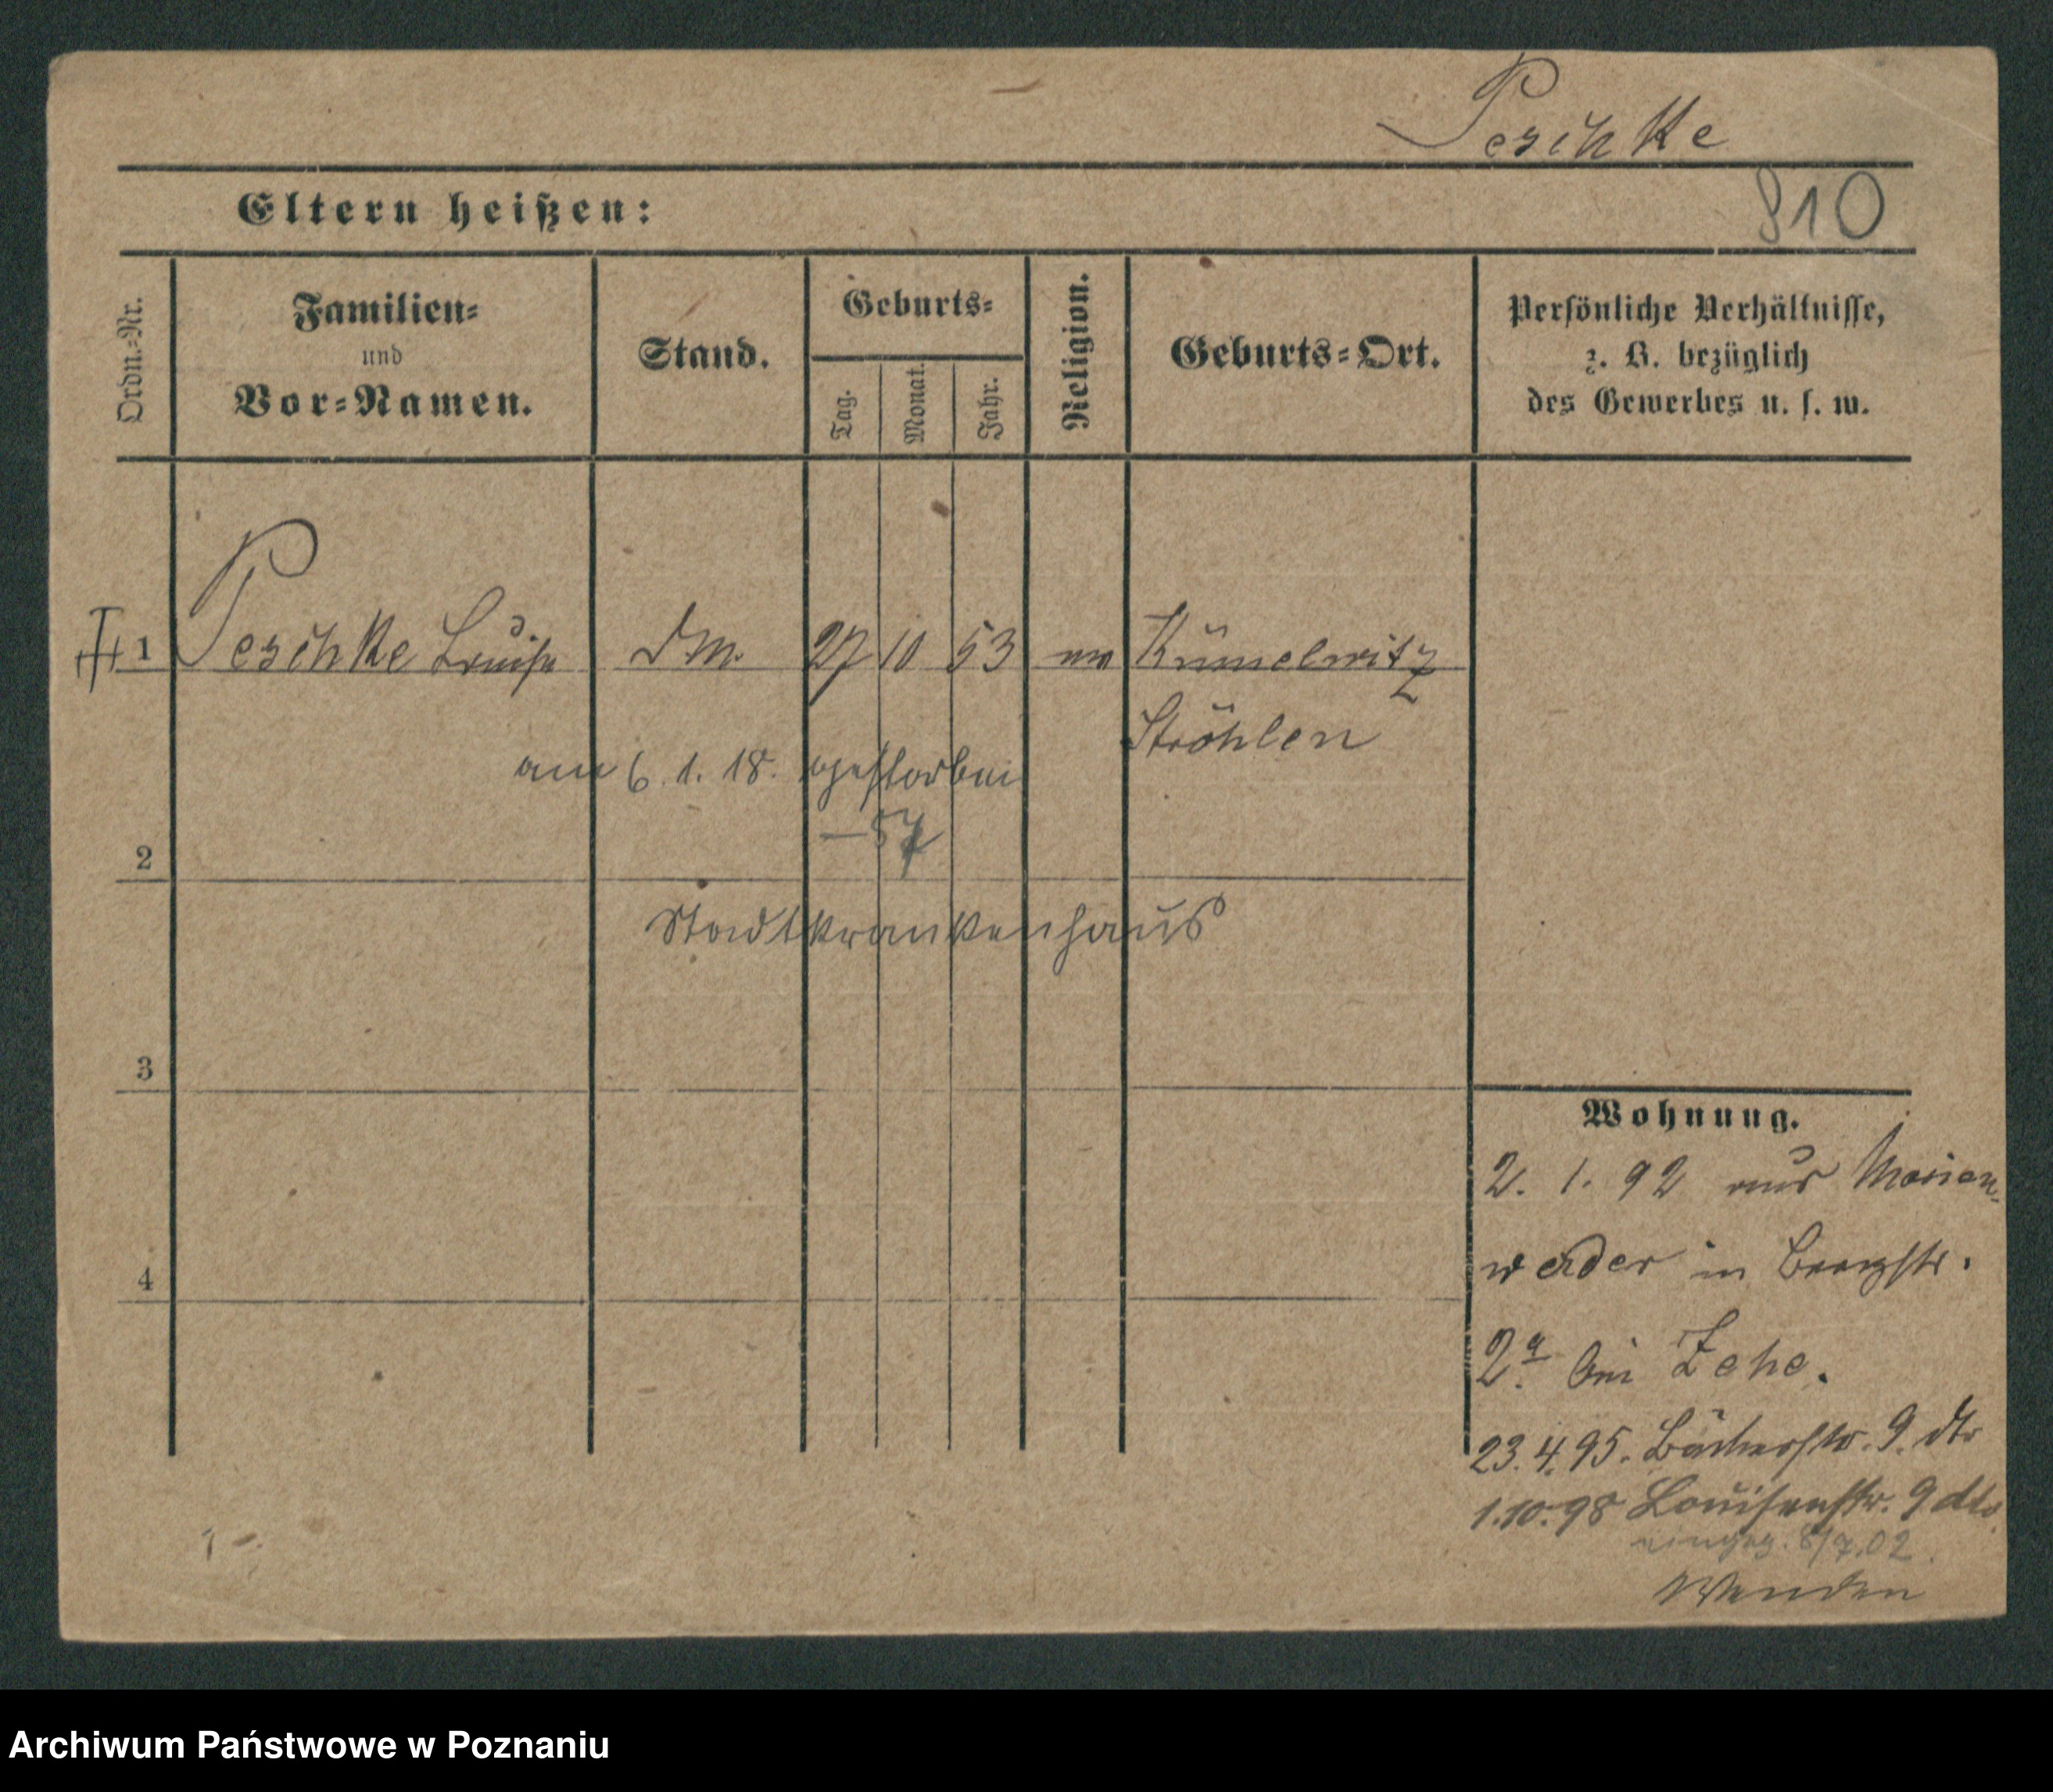 Peschke
Eltern heißen:
810
Ordn.-Nr.
Familien-
und
Vor-Namen.
Stand.
Geburts-
Tag.
Monat.
Jahr.
Religion.
Geburts-Ort.
Persönliche Verhältnisse,
z. B. bezüglich
des Gewerbes u. s. w.
1 Peschke Luise 27 10 53
Ströhlen
am 6. 1. 18. gestorben
2
Stadtkrankenhaus
3
4
Wohnung.
2. 1. 92 aus Marien-
werder in Bergstr.
2a. bei Zehe.
23.4.95. Bäckerstr. 9. dto
1.10.98 Louisenstr. 9 dto
8/7.02
Wenden
Archiwum Państwowe w Poznaniu